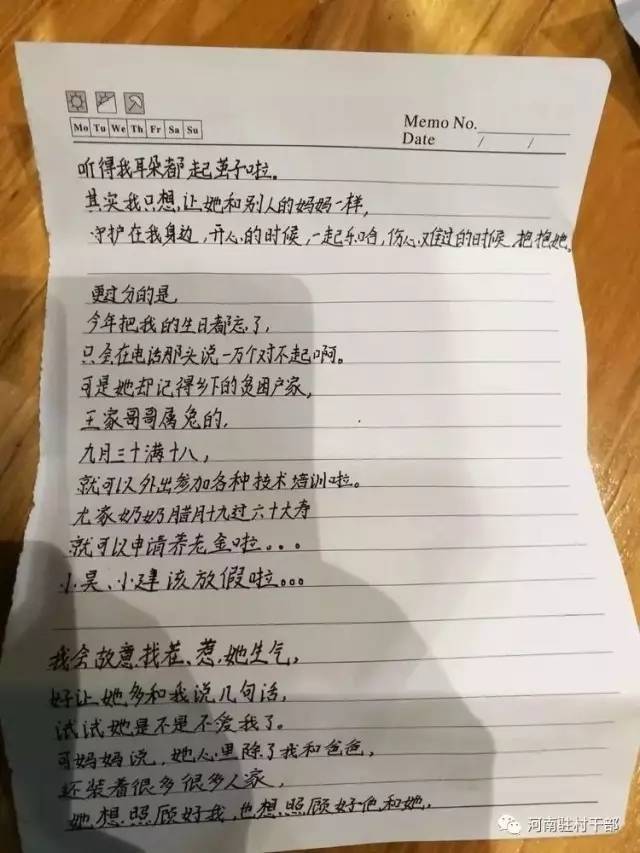 Mo Tu We Th Fr Sa Su
Memo No.
Date / /
听得我耳朵都起茧子啦。
其实我只想让她和别人的妈妈一样,
守护在我身边,开心的时候,一起乐哈,伤心难过的时候,抱抱她。
更过分的是
今年把我的生日都忘了,
只会在电话那头说一万个对不起啊。
可是她却记得乡下的贫困户家,
王家哥哥属兔的,
九月三十满十八,
就可以外出参加各种技术培训啦。
尤家奶奶腊月十九过六十大寿
就可以申请养老金啦。。。
小昊、小建该放假啦。。。
我会故意找茬、惹她生气,
好让她多和我说几句话,
试试她是不是不爱我了。
可妈妈说,她心里除了我和爸爸,
还装着很多很多人家,
她想照顾好我,也想照顾好他和她,
河南驻村干部